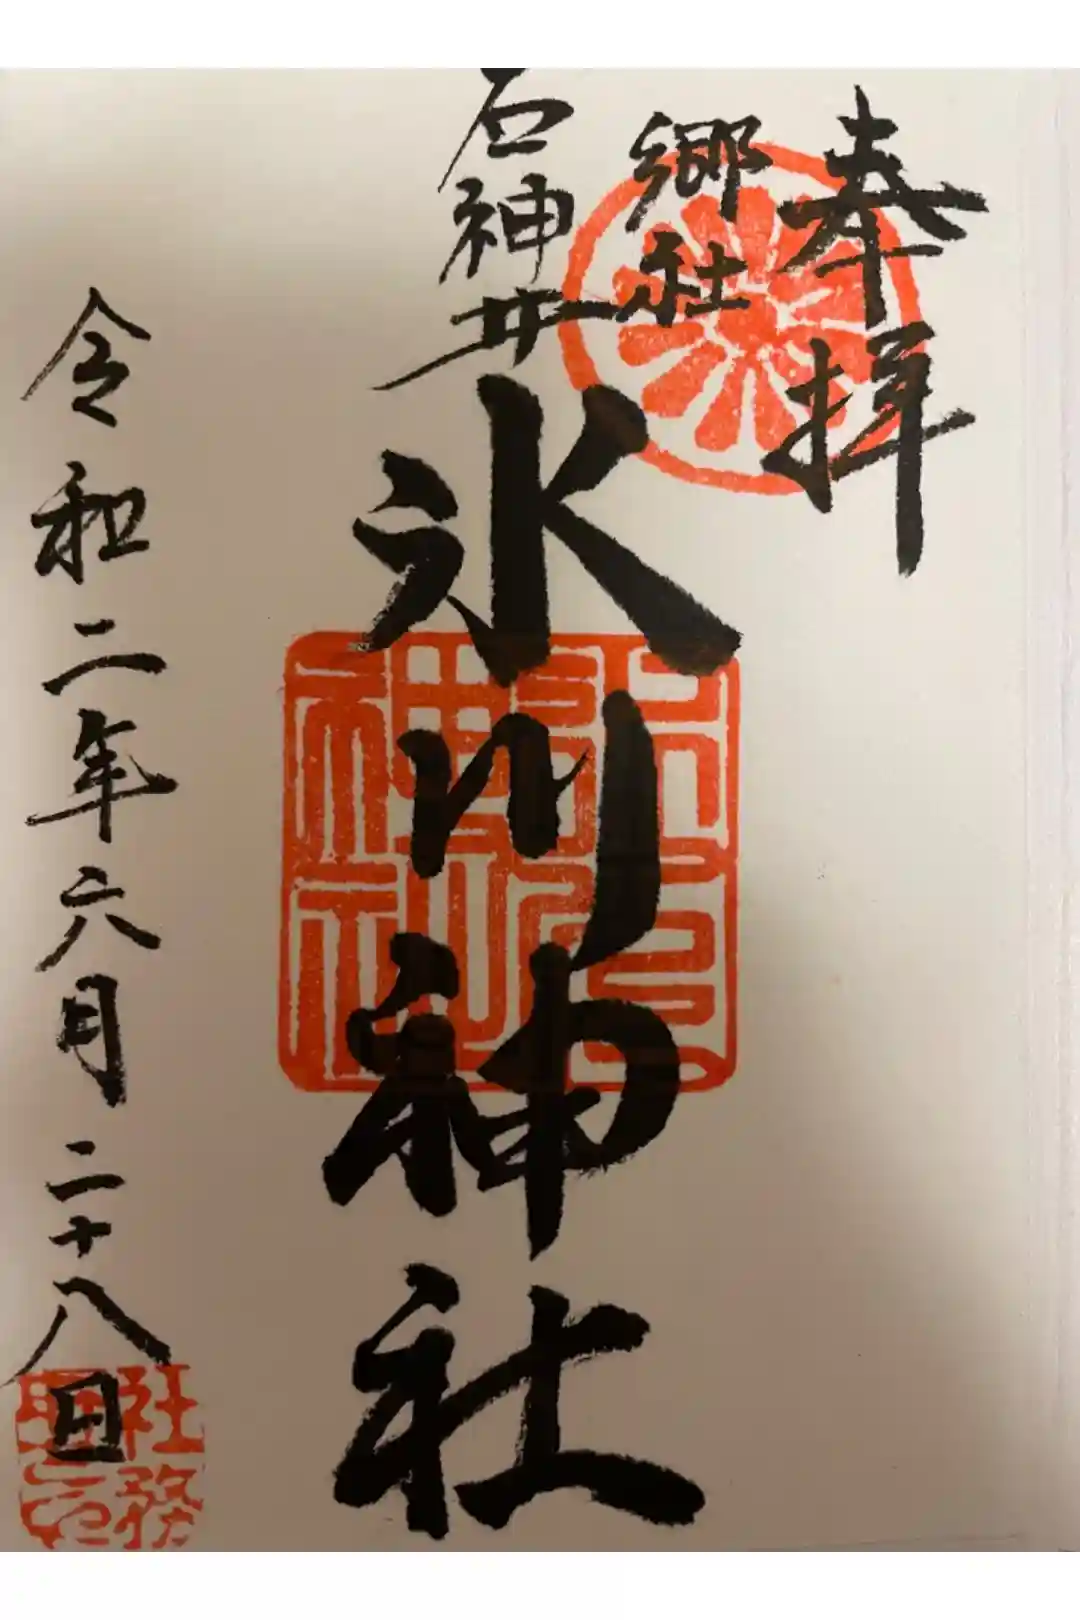 奉拝
郷社
石神井
氷川神社
令和二年六月二十八日
社務